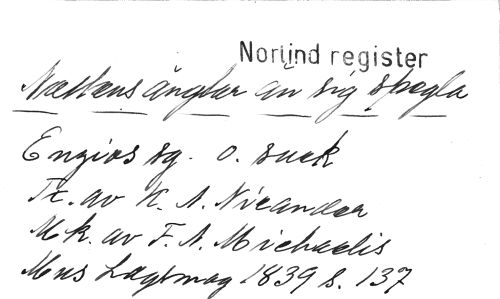 Norlind register
Nattens änglar än sig spegla
Engios sg. o. suck
Tx. av K. A. Nicander
Mk. av F. A. Michaelis
Mus Lägtmag 1839 s. 137